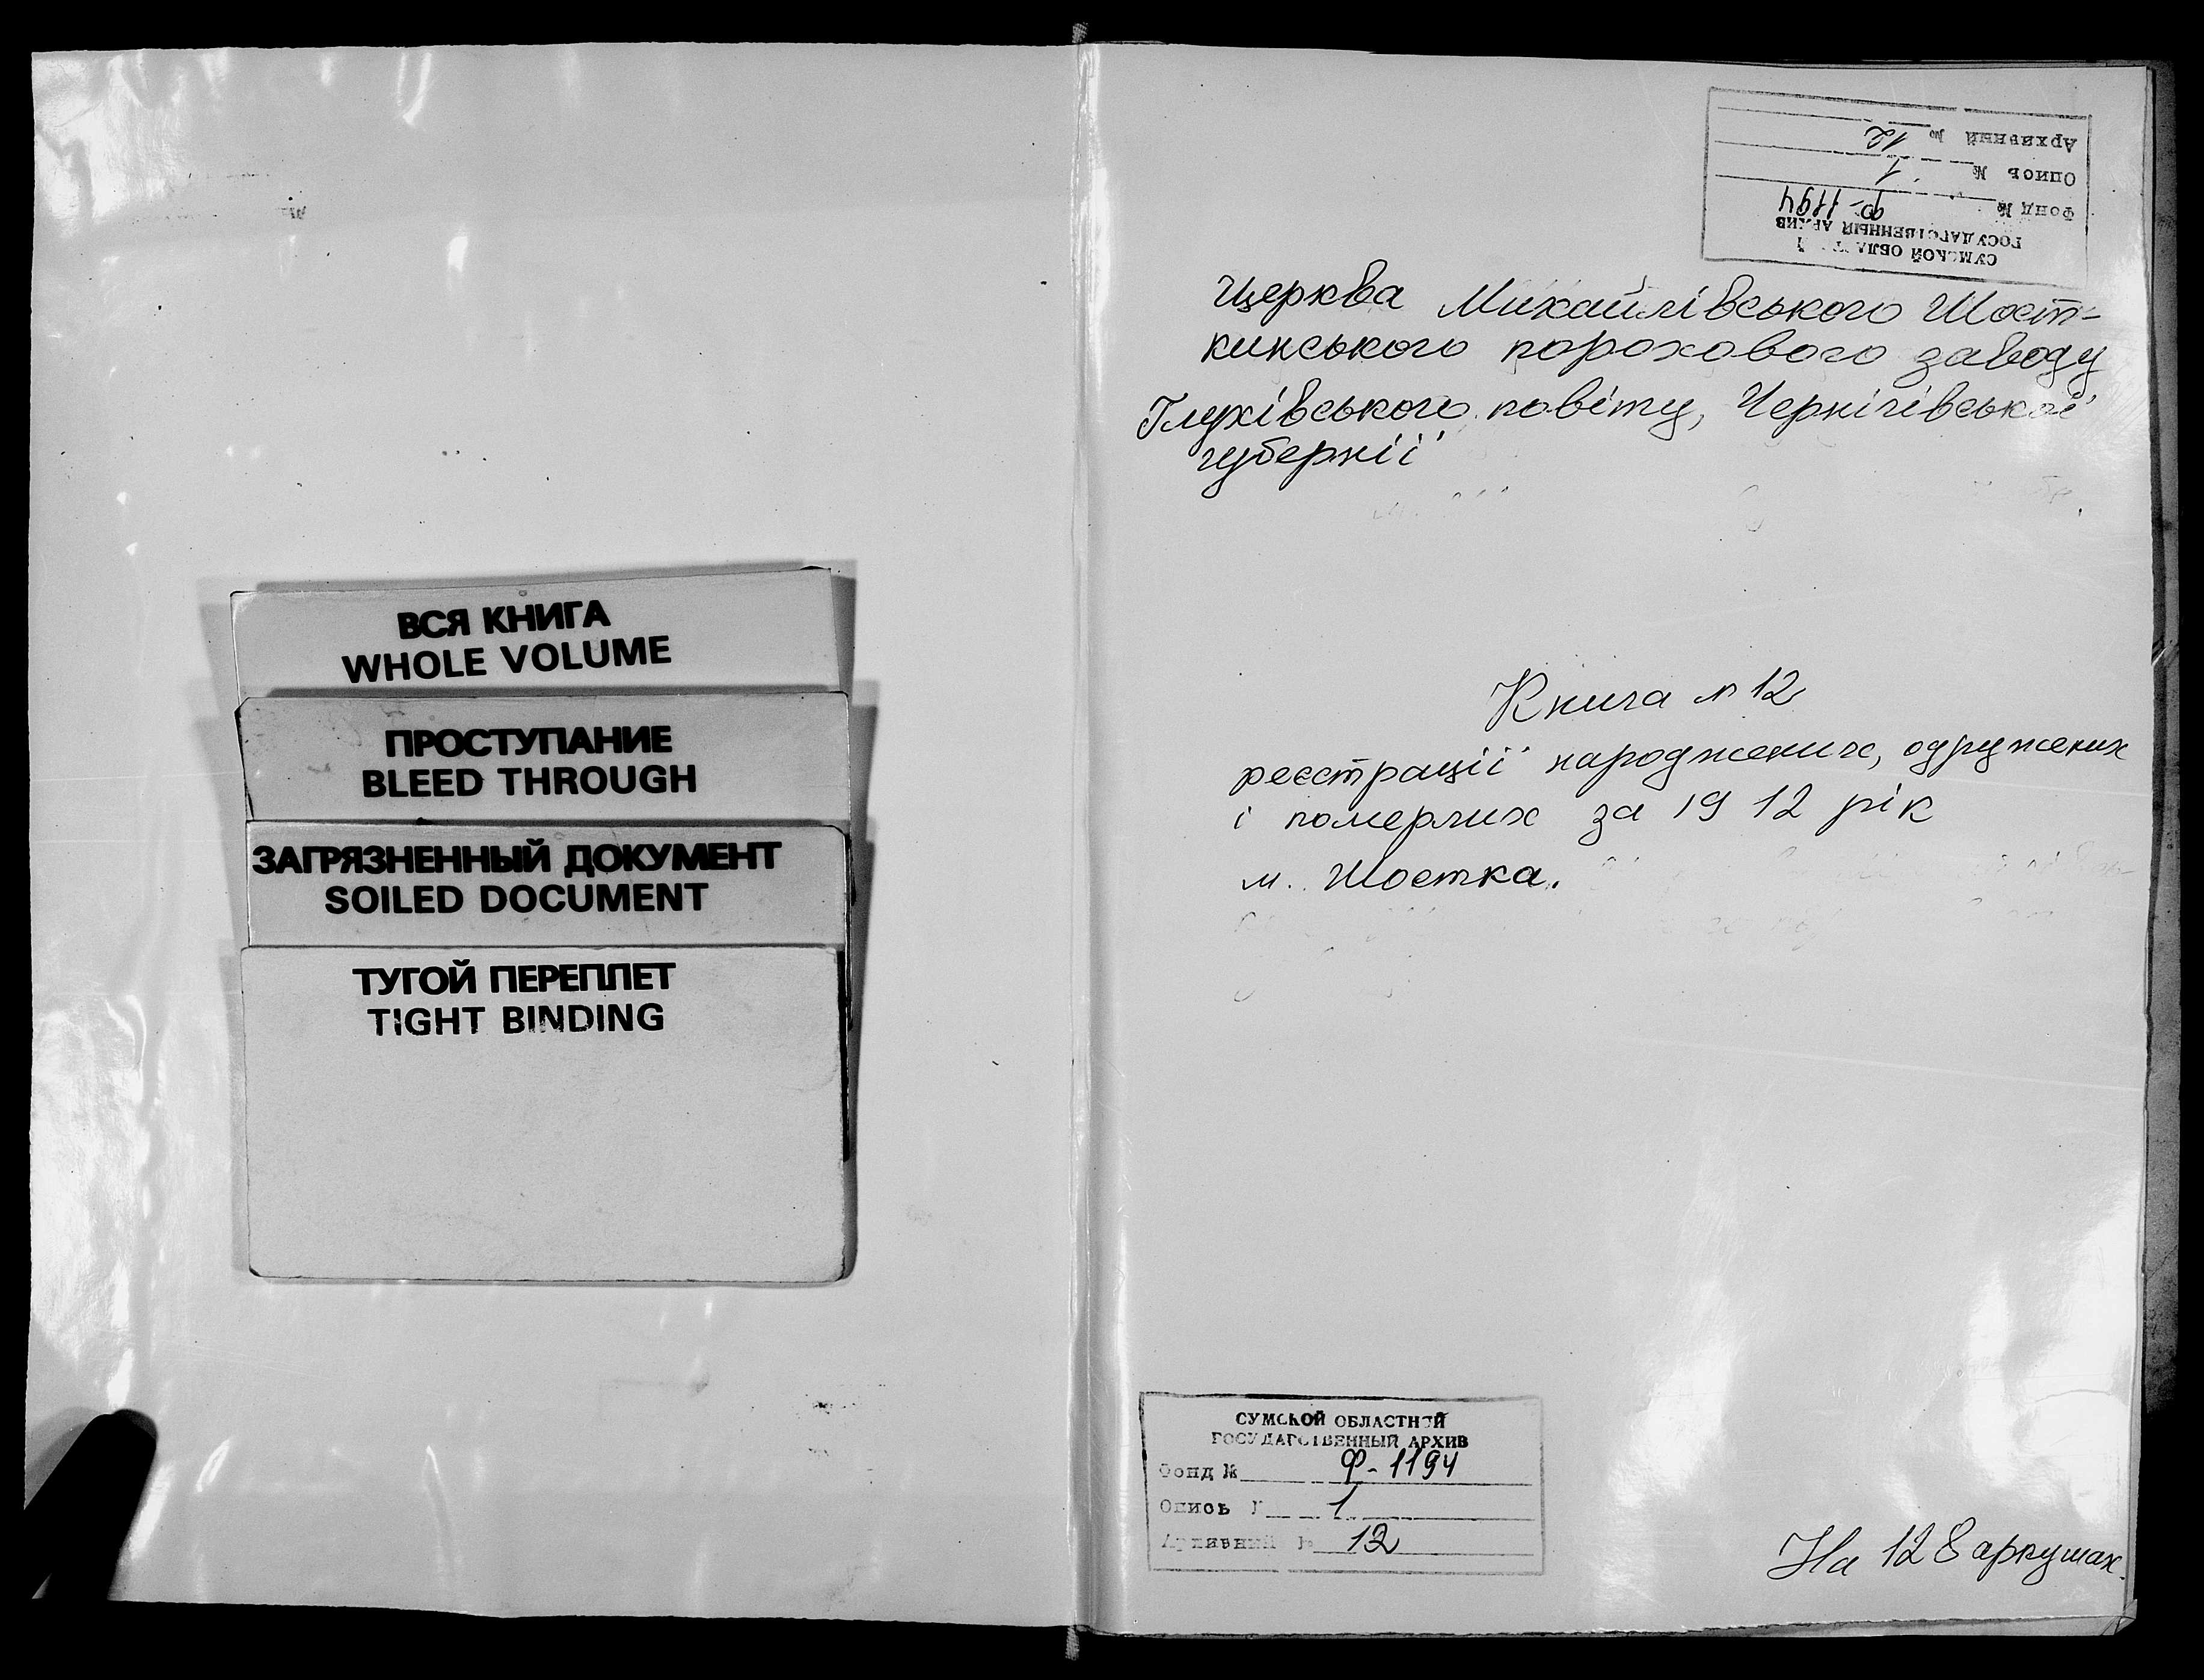 ВСЯ КНИГА
WHOLE VOLUME
ПРОСТУПАНИЕ
BLEED THROUGH
ЗАГРЯЗНЕННЫЙ ДОКУМЕНТ
SOILED DOCUMENT
ТУГОЙ ПЕРЕПЛЕТ
TIGHT BINDING
СУМСКОЙ
ГОСУДАРСТВЕННЫЙ АРХИВ
Фонд № Ф-1194
Опись № 1
Архивный № 12
Церква Михайлівського Шост-
кинського порохового заводу
Глухівського повіту, Чернігівської
губернії
Книга № 12
реєстрації народжених, одружених
і померлих за 1912 рік
м. Шостка.
СУМСКОЙ ОБЛАСТНОЙ
ГОСУДАРСТВЕННЫЙ АРХИВ
Фонд № Ф-1194
Опись № 1
Архивный № 12
На 128 аркушах.